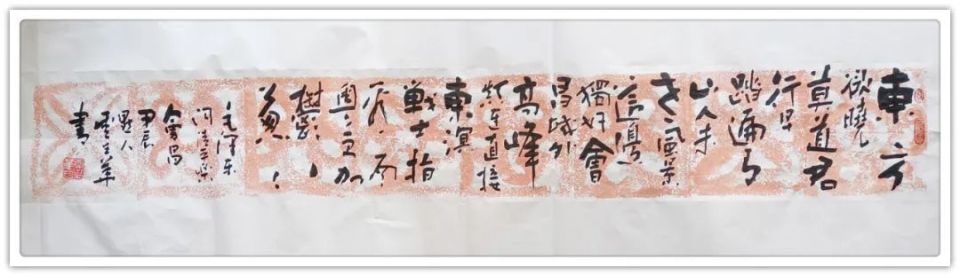 東方
欲曉
莫道君
行早
踏遍青
山人未
老風景
這邊
獨好會
昌城外
高峰
顛連直接
東溟
戰士指
看南
粵更加
鬱鬱
蔥蔥
毛澤東
詞清平樂
會昌
甲辰
書